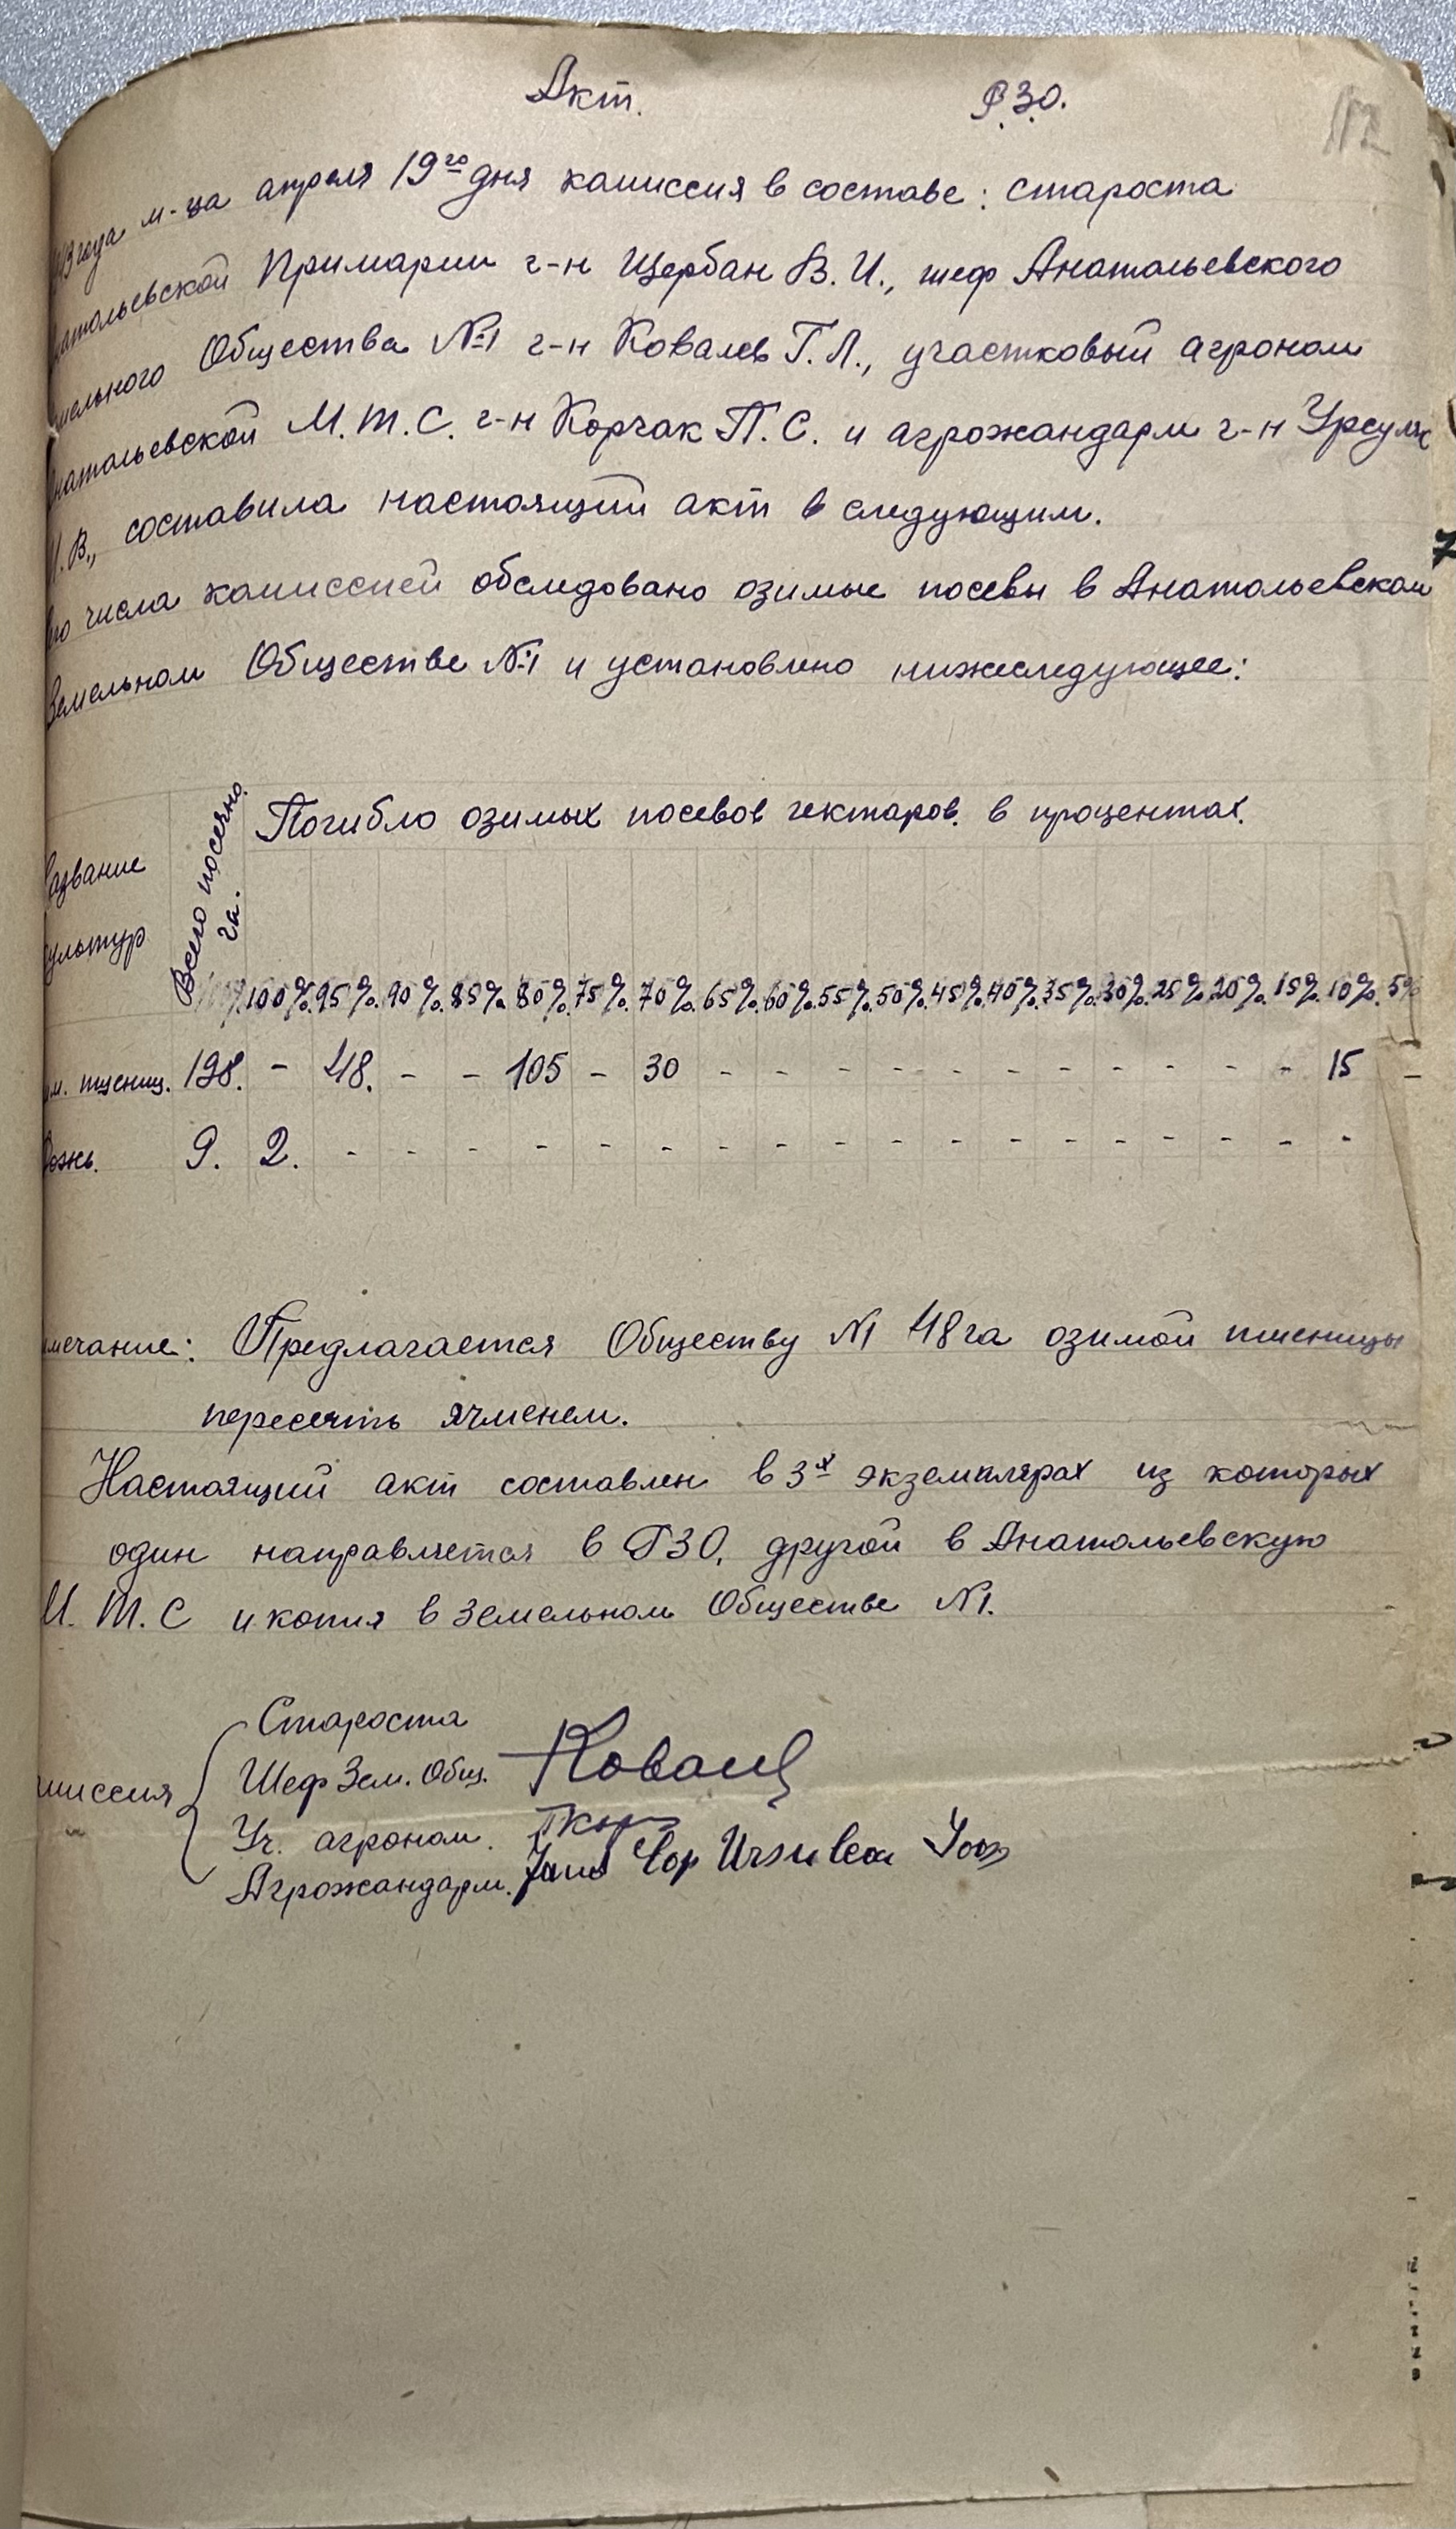 Акт. Р.З.О. 112
43 года м-ца апреля 19го дня комиссия в составе: староста
Анатольевской Примарии г-н Щербан В. И., шеф Анатольевского
мельного Общества №1 г-н Ковалев Г. Л., участковый агроном
натольевской М.Т.С. г-н Корчак П. С. и агрожандарм г-н Урсуляк
И. В., составила настоящий акт в следующим.
его числа комиссией обследовано озимые посевы в Анатольевском
Земельном Обществе №1 и установлено нижеследующее:
Погибло озимых посевов гектаров. в процентах.
Название
культур
Всего посеяно.
га.
100% 95% 90% 85% 80% 75% 70% 65% 60% 55% 50% 45% 40% 35% 30% 25% 20% 15% 10% 5%
им. пшениц. 198. - 48. - - 105 - 30 - - - - - - - - - - 15 -
Рожь. 9. 2. - - - - - - - - - - - - - - - - - -
мечание: Предлагается Обществу №1 48 га озимой пшеницы
пересеять ячменем.
Настоящий акт составлен в 3х экземплярах из которых
один направляется в РЗО, другой в Анатольевскую
М. Т. С и копия в земельном Обществе №1.
миссия
Староста
Шеф Зем. Общ. Ковалев
Уч. агроном. ПКор
Агрожандарм. Jand Cop Ursulea